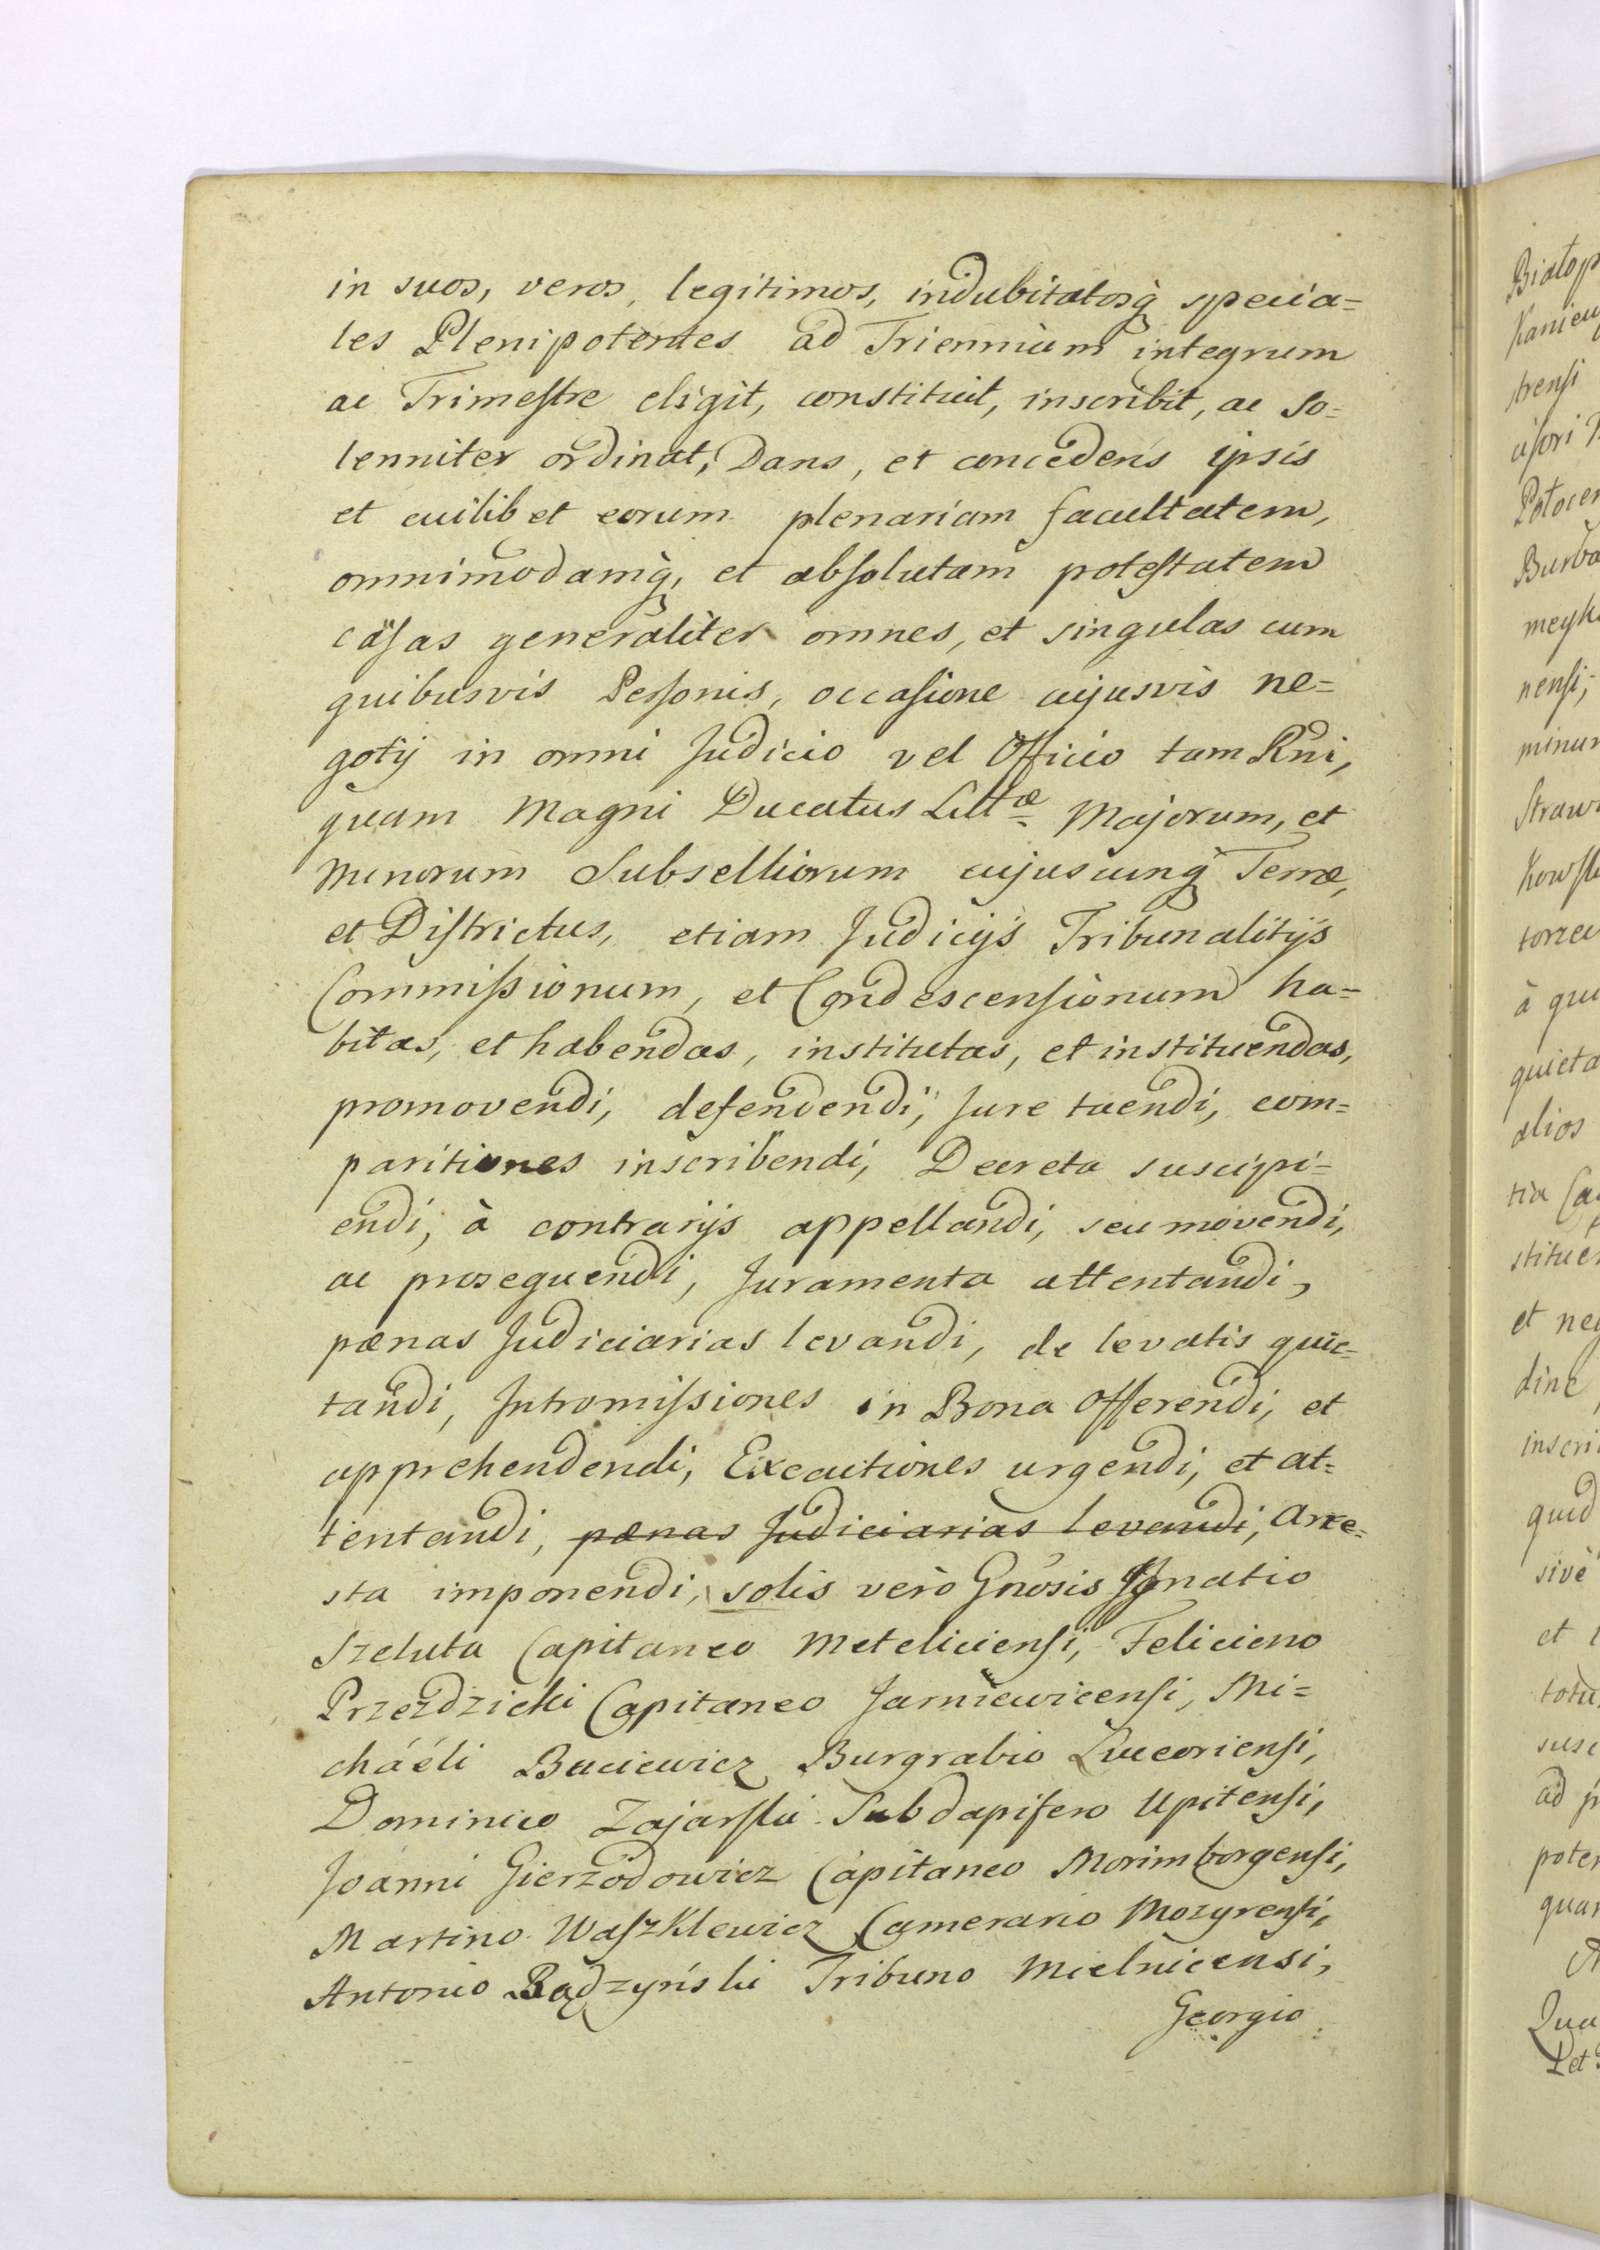 in suos, veros, legitimos, indubitatosq̀ specia=
les Plenipotentes ad Triennium integrum
ac Trimestre eligit, constituit, inscribit, ac so=
lenniter ordinat, Dans, et concedens ipsis
et cuilibet eorum plenariam facultatem,
omnimodamq̀, et absolutam potestatem
cãsas generaliter omnes, et singulas cum
quibusvis Personis, occasione cujusvis ne=
gotij in omni Judicio vel Officio tam Rni,
quam Magni Ducatus Littæ Majorum, et
Minorum Subselliorum cujuscunq̀ Terræ,
et Districtus, etiam Judicijs Tribunalitijs
Commissionum, et Condescensionum ha=
bitas, et habendas, institutas, et instituendas,
promovendi, defendendi, Jure tuendi, com=
paritiones inscribendi, Decreta suscipi=
endi, à contrarijs appellandi, seu movendi,
ac prosequendi, Juramenta attentandi,
pænas Judiciarias levandi, de levatis quie=
tandi, Intromissiones in Bona offerendi, et
apprehendendi, Executiones urgendi, et at=
tentandi, pænas Judiciarias levandi, Arre=
sta imponendi, solis verò Gnosis Ignatio
Szeluta Capitaneo Meteliciensi, Feliciano
Przezdzicki Capitaneo Jarniewicensi, Mi=
cháéli Buciewicz Burgrabio Luceoriensi,
Dominico Zajarski Subdapifero Upitensi,
Joánni Gierzodowicz Capitaneo Morimborgensi,
Martino Waszklewicz Camerario Mozyrensi,
Antonio Bądzyński Tribuno Mielnicensi,
Georgio
Kanien
trensi
Potocen
nensi;
minun
à qui
quieta
alios
stituen
et neg
quid
sivè
et
totu
susc
ad
poten
quan
Qua